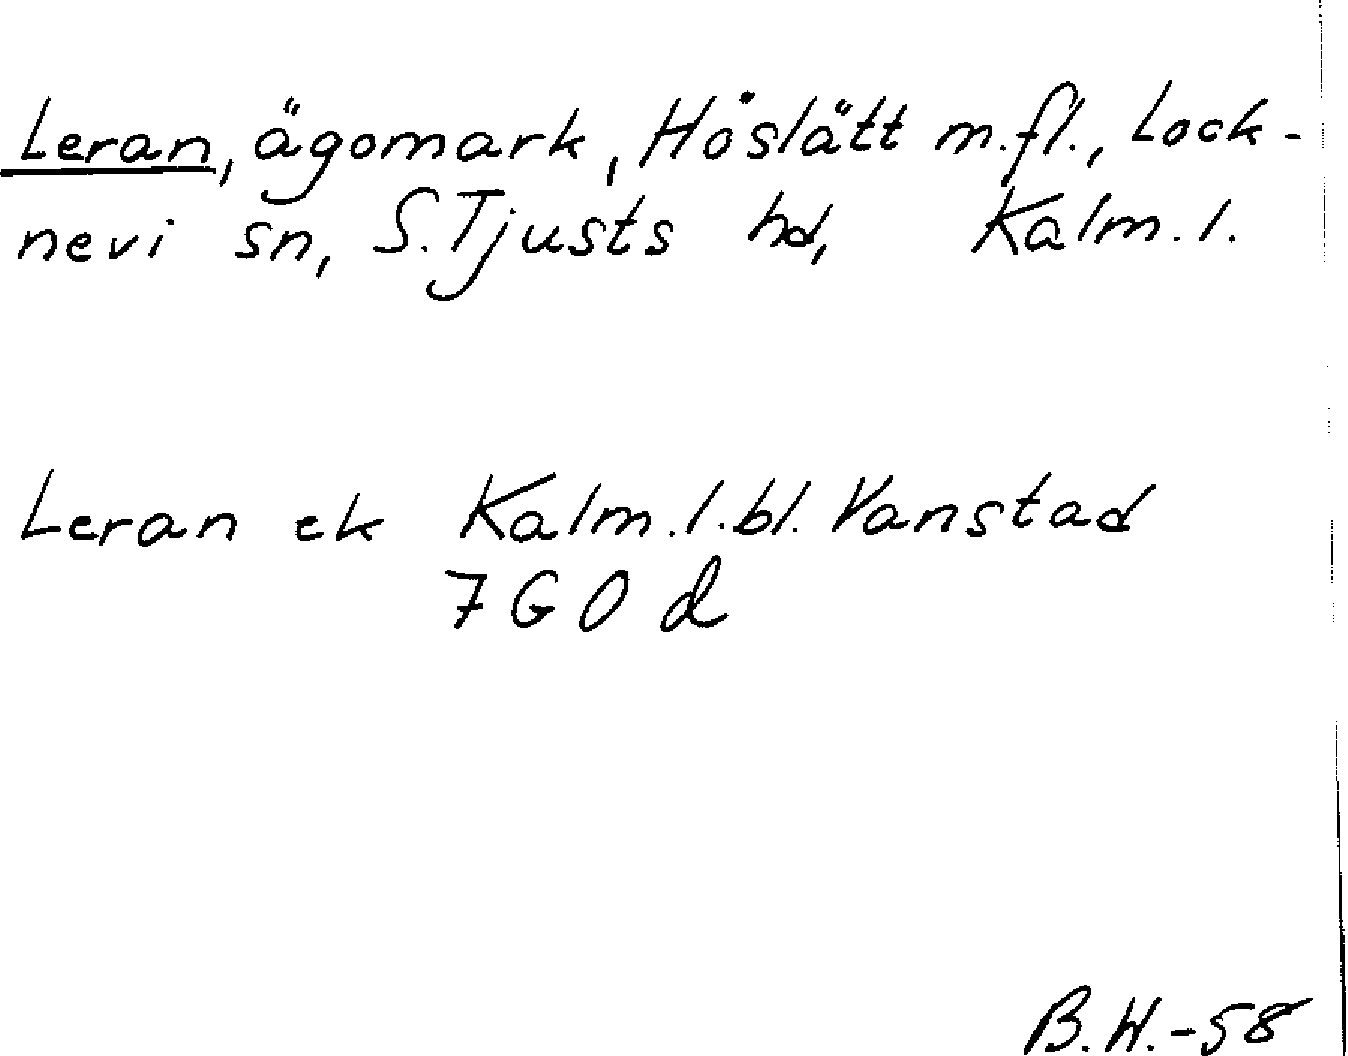 Leran, ägomark, Håslätt m.fl., Lock-
nevi sn, S. Tjusts hd, Kalm. l.
Leran ek Kalm. l. bl. Vanstad
7 G O d
B.W.-58